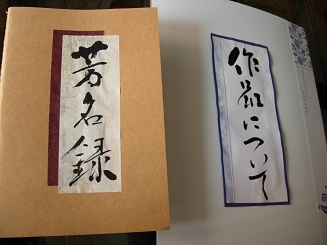 芳名録
作品について